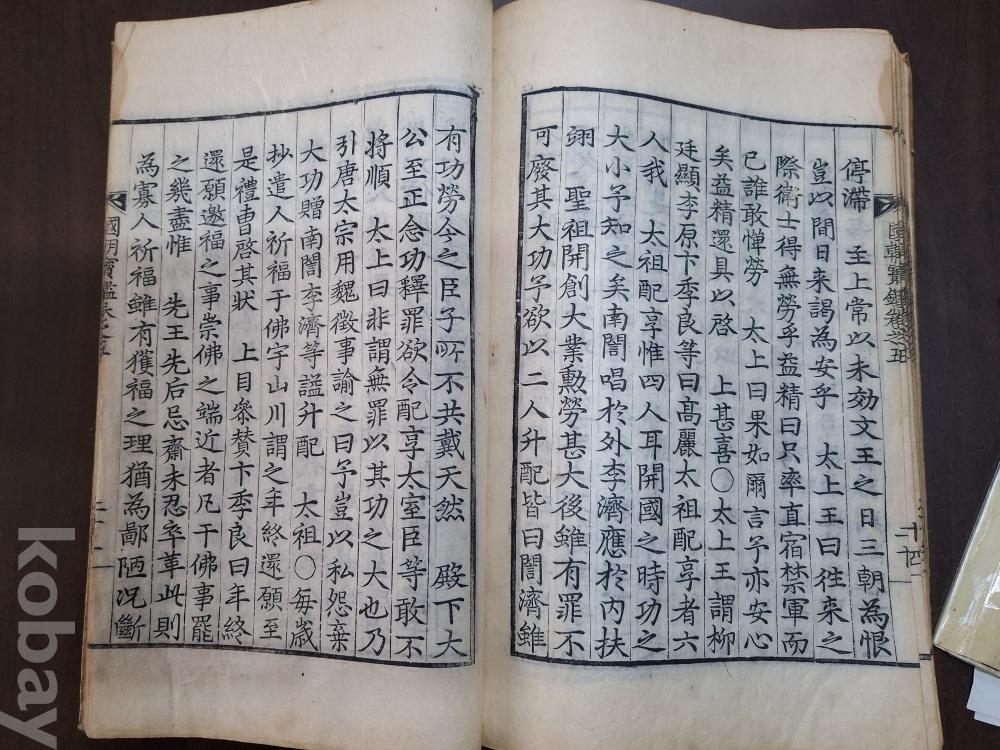 停滯 至上常以未効文王之日三朝為恨
豈以間日来謁為安乎 太上王曰徃来之
際衛士得無勞乎益精曰只率直宿禁軍而
已誰敢憚勞 太上曰果如爾言予亦安心
矣益精還具以啓 上甚喜○太上王謂柳
廷顯李原卞季良等曰高麗太祖配享者六
人我 太祖配享惟四人耳開國之時功之
大小予知之矣南誾唱於外李濟應於内扶
翊 聖祖開創大業勳勞甚大後雖有罪不
可廢其大功予欲以二人升配皆曰誾濟雖
有功勞今之臣子所不共戴天然 殿下大
公至正念功釋罪欲令配享太室臣等敢不
將順 太上曰非謂無罪以其功之大也乃
引唐太宗用魏徵事諭之曰予豈以私怨棄
大功贈南誾李濟等謚升配 太祖○每歳
抄遣人祈福于佛宇山川謂之年終還願至
是禮曹啓其狀 上目叅賛卞季良曰年終
還願邀福之事崇佛之端近者凡干佛事罷
之幾盡惟 先王先后忌齋未忍卒革此則
為寡人祈福雖有獲福之理猶為鄙陋况斷
國朝寶鑑卷之五
國朝寶鑑卷之五
二十四
kobay